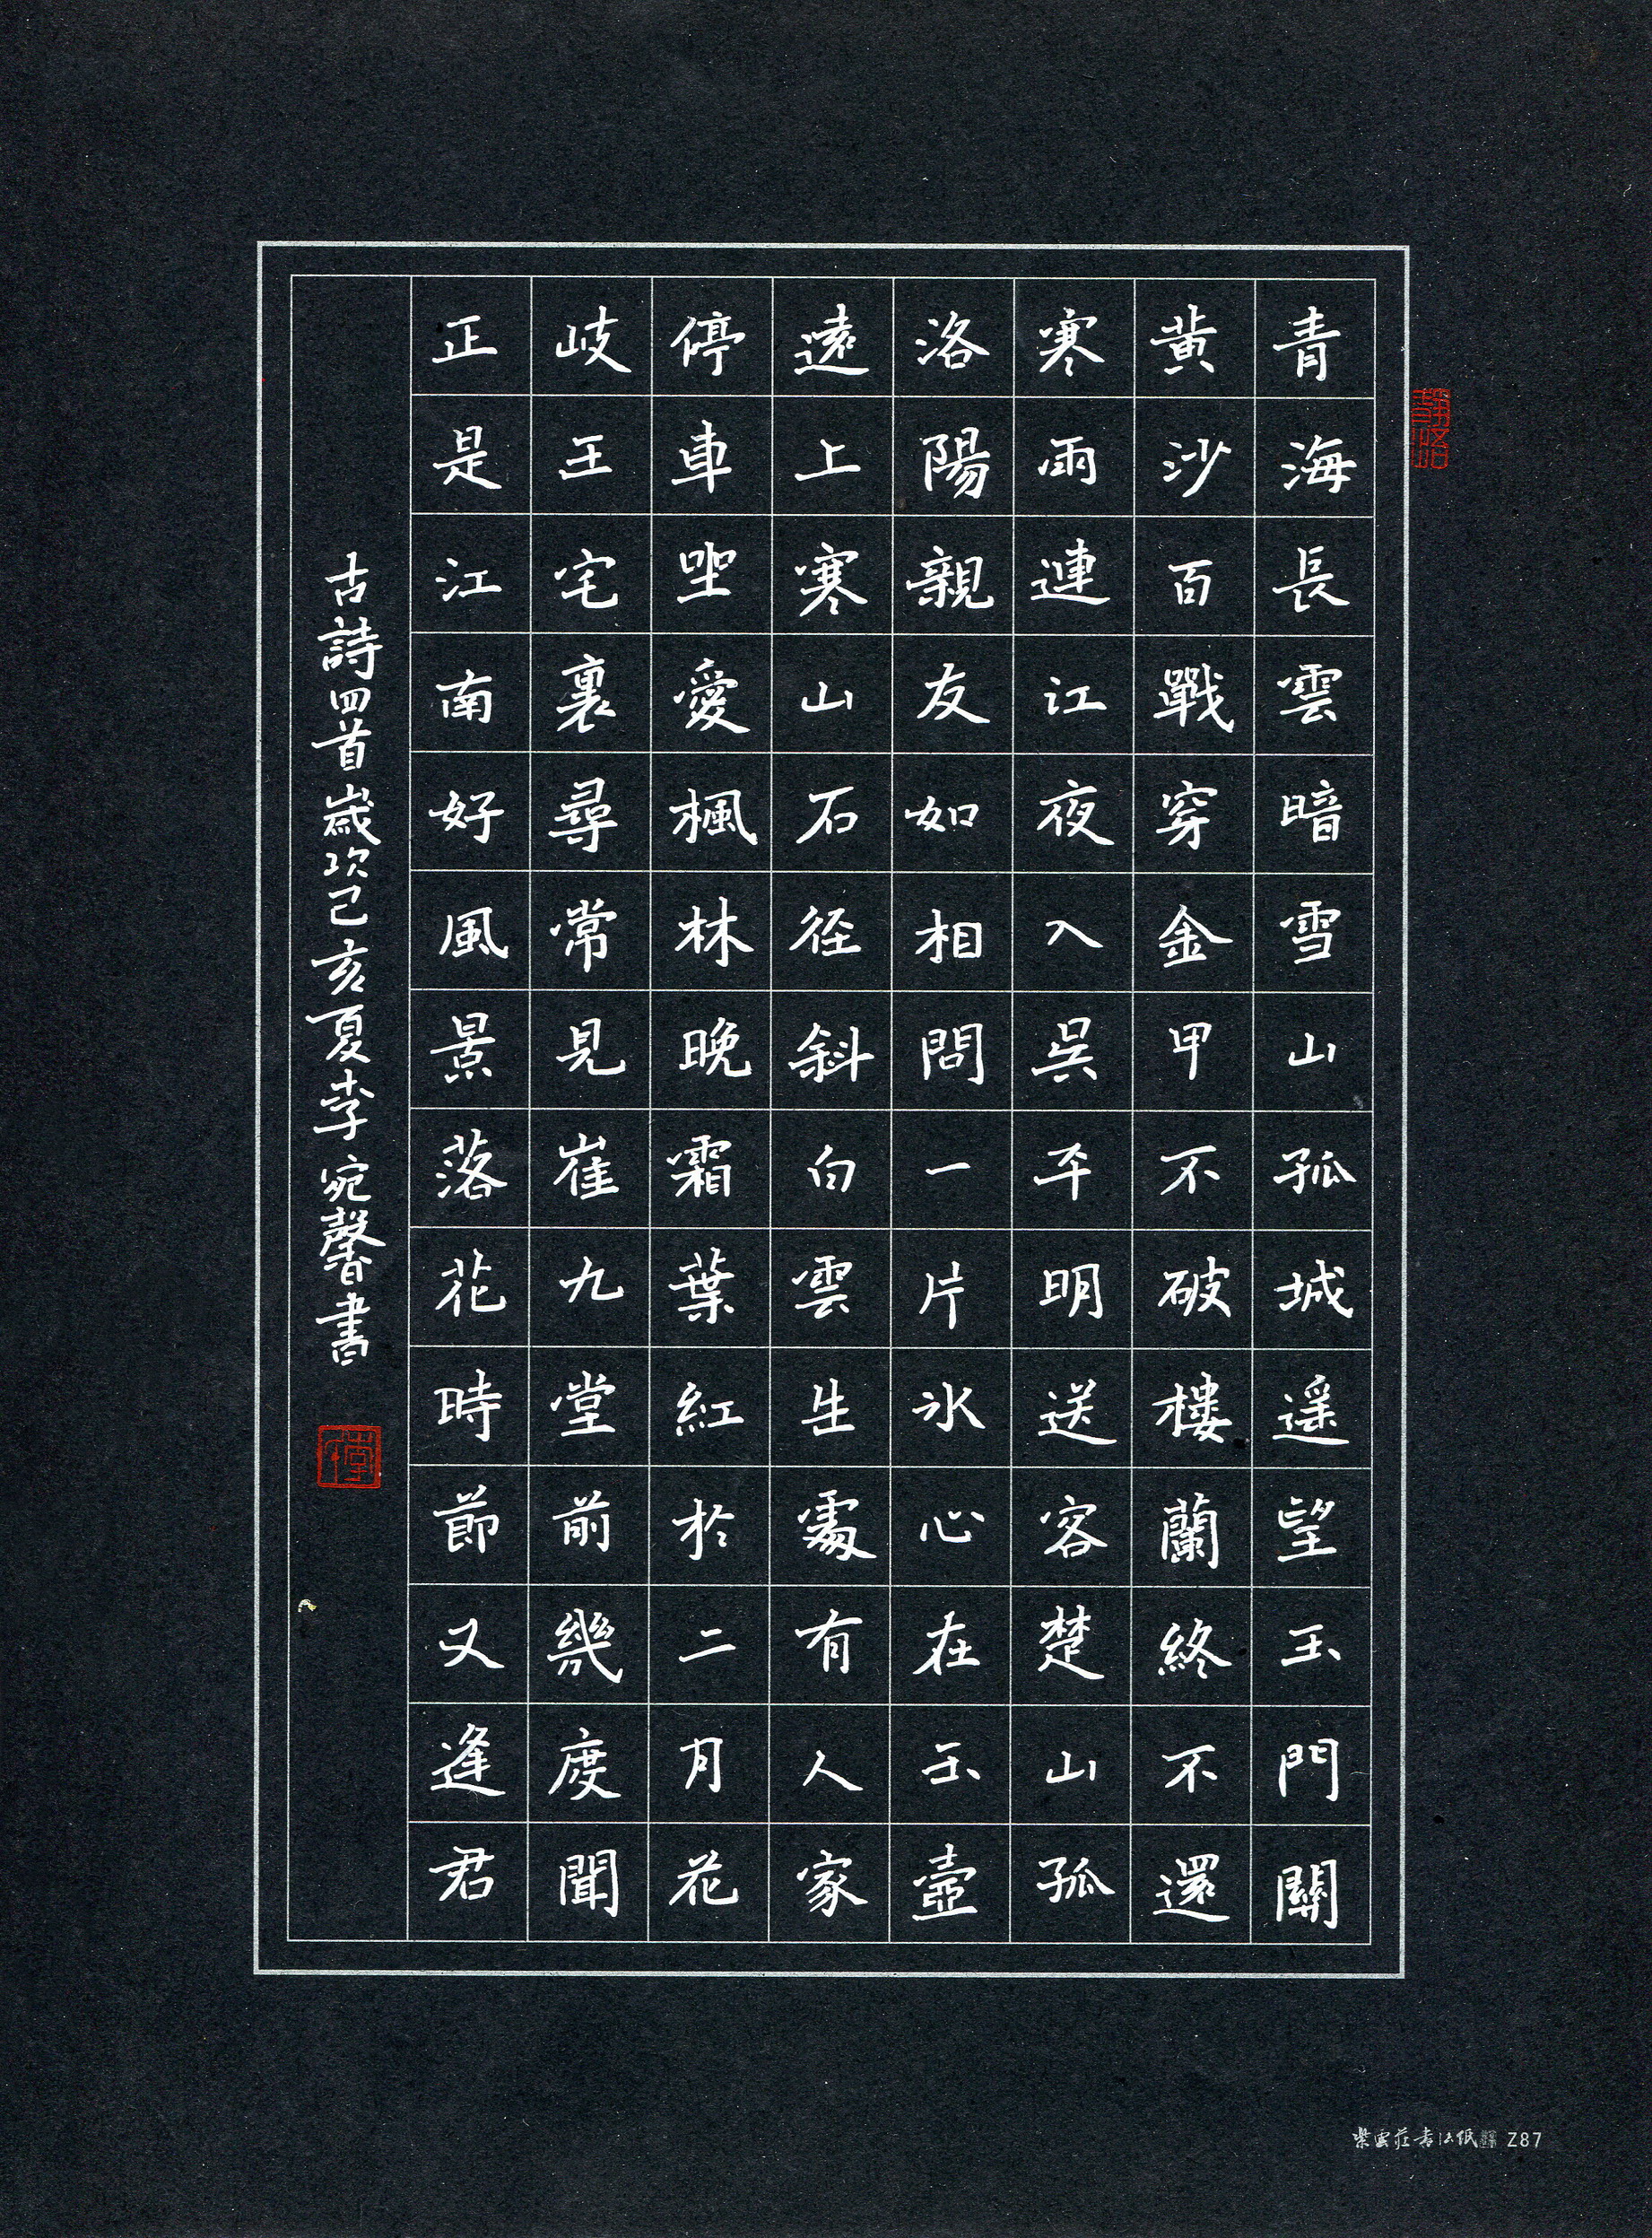 青海長雲暗雪山孤城遥望玉門關
黄沙百戰穿金甲不破樓蘭終不還
寒雨連江夜入吴平明送客楚山孤
洛陽親友如相問一片冰心在玉壺
遠上寒山石径斜白雲生處有人家
停車坐愛楓林晚霜葉紅於二月花
岐王宅裏尋常見崔九堂前幾度聞
正是江南好風景落花時節又逢君
古詩四首歲次己亥夏李宛馨書
紫雲莊書法紙 Z87